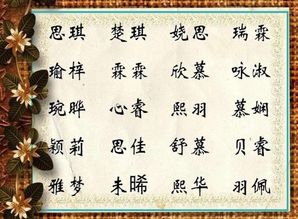 思琪 楚琪 娆思 瑞霖
瑜梓 霖霖 欣慕 咏淑
琬晔 心睿 熙羽 慕娴
颖莉 思佳 舒慕 贝睿
雅梦 未晞 熙华 羽佩